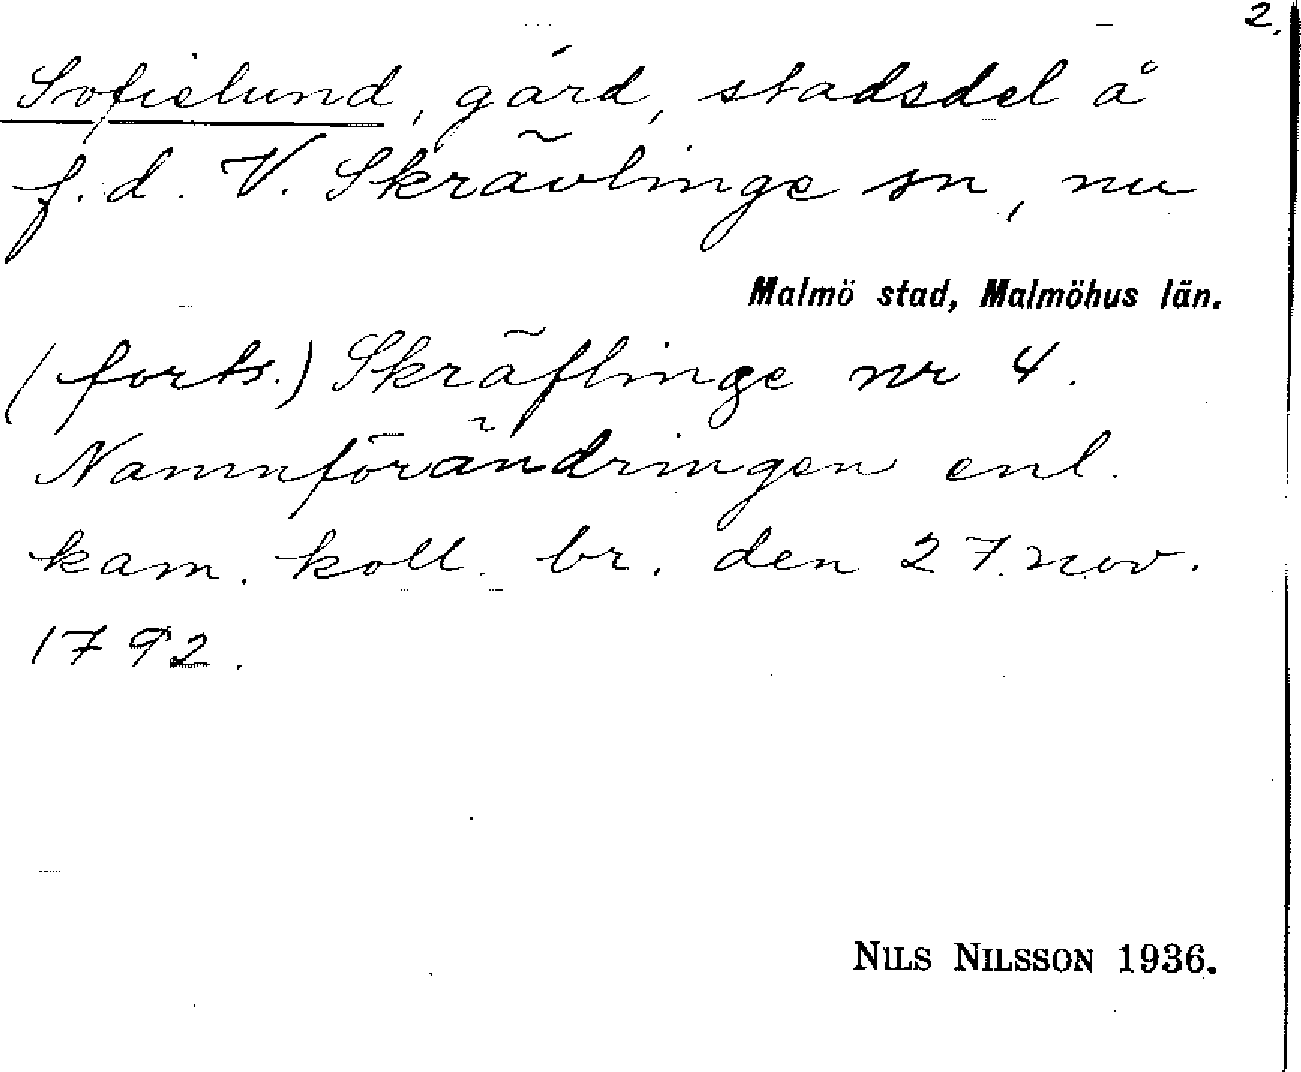 2.
Sofielund, gård, stadsdel å
f. d. V. Skrävlinge sn, nu
Malmö stad, Malmöhus län.
(forts.) Skräflinge nr 4.
Namnförändringen enl.
kam. koll. br. den 27. nov.
1792.
NILS NILSSON 1936.